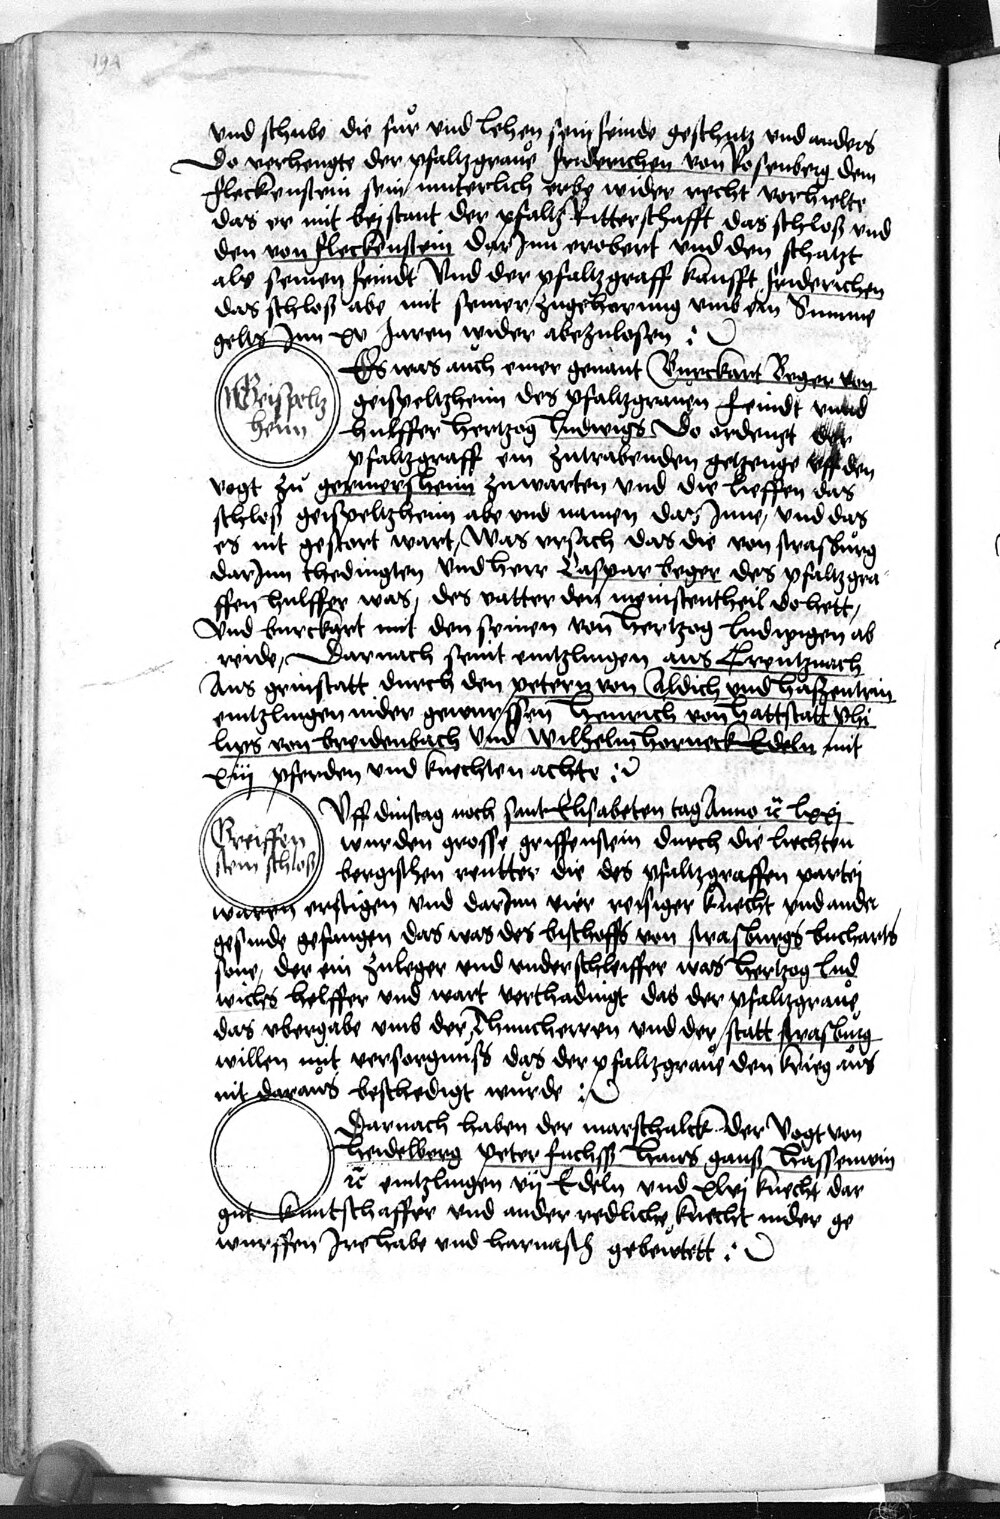 194
vnd schube die fur vnd lehen sein feinde geschutz vnd anders
Do verhengte der pfaltzgraue friderichen von Rosenberg dem
fleckenstein sein muterlich erbe wider recht vorhielte
das er mit beistant der pfaltz Ritterschafft das schloß vnd
den von fleckenstein dar Inn erobert vnd den schatzt
als seinen feindt Vnd der pfaltzgraff kaufft friderichen
das schloß abe mit seiner zugehorung vmb ein Summe
gelts Inn xv Jaren wider abezulosen
Geispeltz
heim
Es was auch einer genant Burckart Beger von
geispeltzheim des pfaltzgrauen feindt vnnd
hulffer hertzog ludwigs Do ordenet der
pfaltzgraff ein zutrabenden getzenge vff den
vogt zu germersheim zuwarten vnd die lieffen das
schloß geispeltzheim abe vnd namen dar Inne, vnd das
es nit gestort wart, Was vrsach das die von strasburg
dar Inn thedingten vnd herr Caspar beger des pfaltzgra
ffen hulffer was, des vatter den meinstentheil do hett,
Vnd burckart mit den seinen von hertzog ludwigen ab
reide, Darnach seint eintzlingen aus Creutznach
Aus grinstatt durch den petern von Aldich vnd haßentrin
eintzlingen nider geworffen henrich von hattstatt phi
lips von breidenbach Vnd Wilhelm horneck Edeln mit
xiij pferden vnd knechten achte
Greiffen
stein schloß
Vff dinstag noch sant Elisabeten tag Anno lxxj
wurden grosse griffenstein durch die liechten
bergischen reutter die des pfaltzgraffen partei
waren erstigen vnd dar Inn vier reisiger knecht vnd ander
gesinde gefangen das was des bischoffs von strasburgs bucharts
sone, der ein zuleger vnd vnderschleiffer was hertzog lud
wichs helffer vnd wart verthadingt das der pfaltzgraue
das vbergabe vmb der Thumcherren vnd der statt strasburg
willen mit versorgnuss das der pfaltzgraue den krieg aus
nit daraus beschedigt wurde
Darnach haben der marschalck der Vogt von
heidelberg peter fuchss hans ganß hassenwin
eintzlingen vij Edeln vnd xlvj knecht dar
gut kuntschaffer vnd ander redliche knecht nider ge
wurffen Ire habe vnd harnasch gebeutett